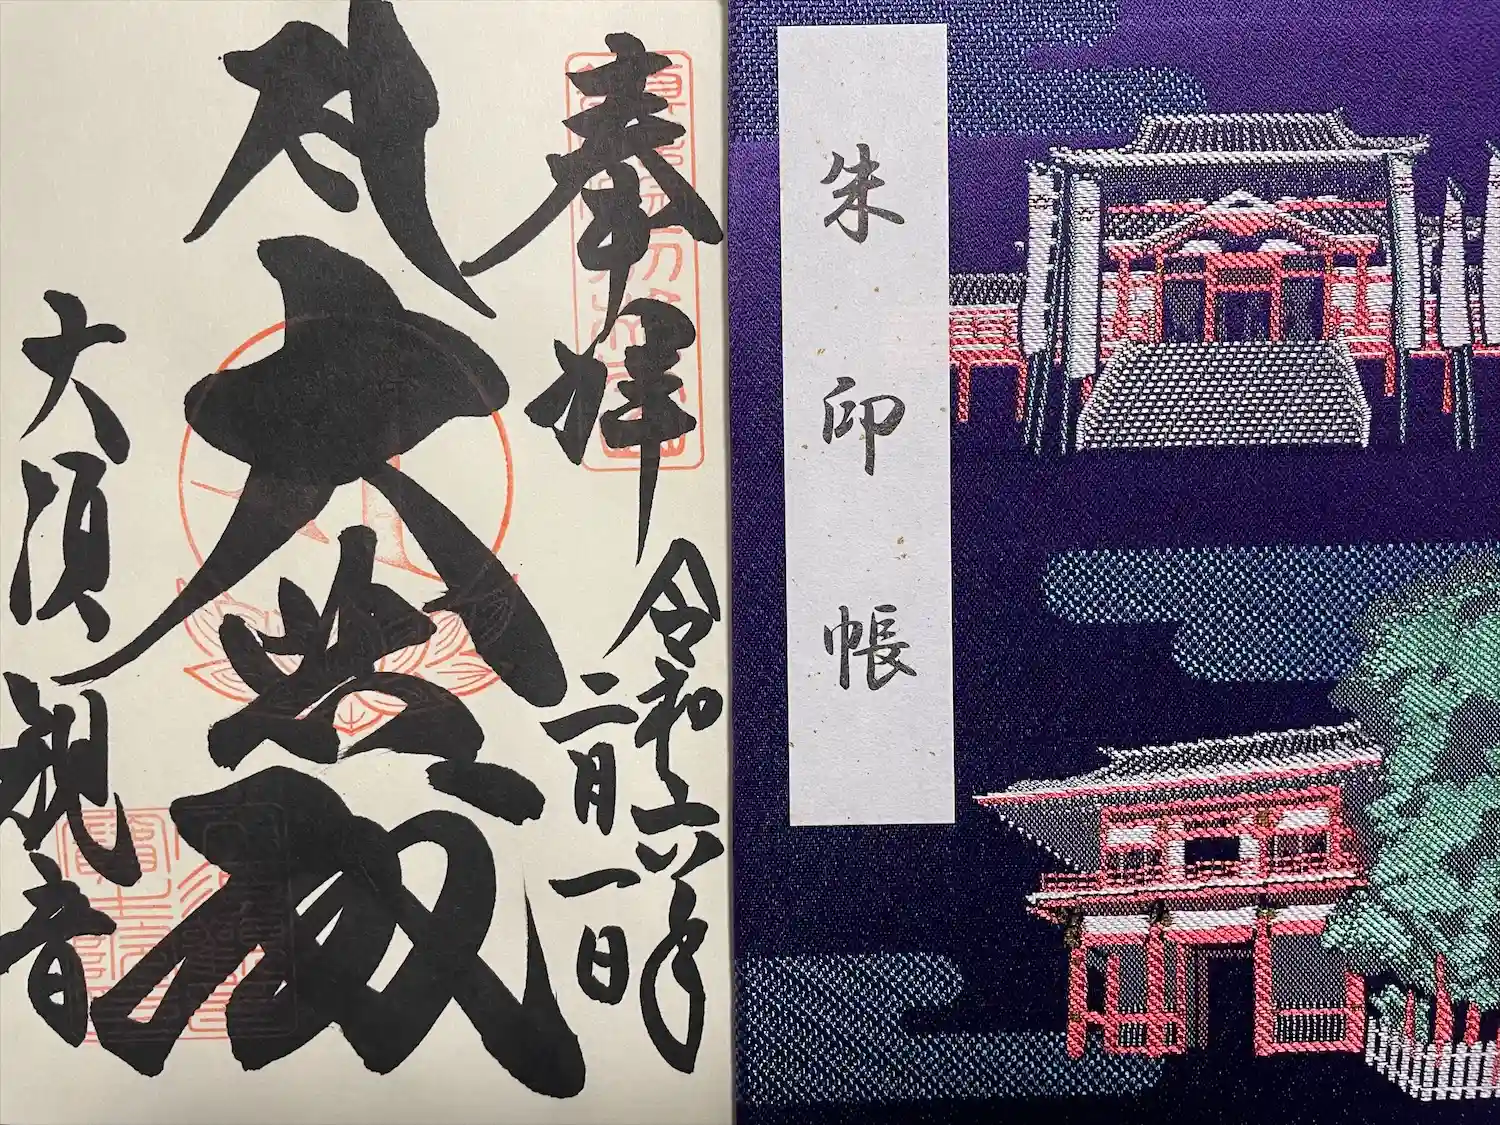 奉拝
令和六年
二月一日
大悲殿
大須観音
朱印帳